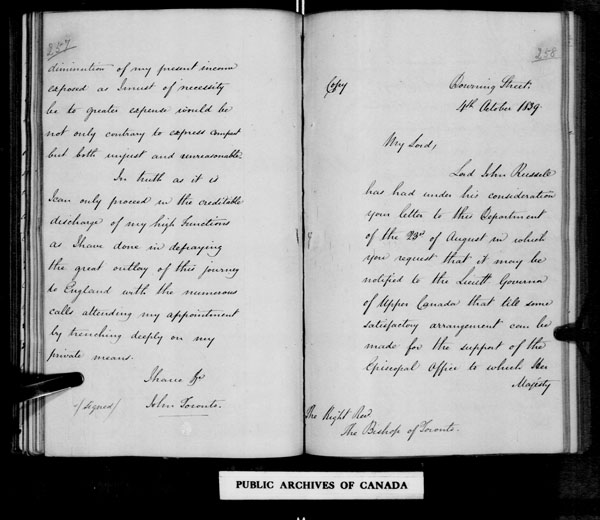 257
diminution of my present income
exposed as I must of necessity
be to greater expense would be
not only contrary to express compact
but both unjust and unreasonable.
In truth as it is
I can only proceed in the creditable
discharge of my high Functions
as I have done in defraying
the great outlay of this journey
to England with the numerous
calls attending my appointment
by trenching deeply on my
private means.
I have &c
/signed/ John Toronto.
258
Copy
Downing Street.
4th October 1839.
My Lord,
Lord John Russell
has had under his consideration
your letter to this Department
of the 23d of August in which
you request that it may be
notified to the Lieutt Governor
of Upper Canada that till some
satisfactory arrangement can be
made for the support of the
Episcopal Office to which Her
Majesty
The Right Revd
The Bishop of Toronto.
PUBLIC ARCHIVES OF CANADA